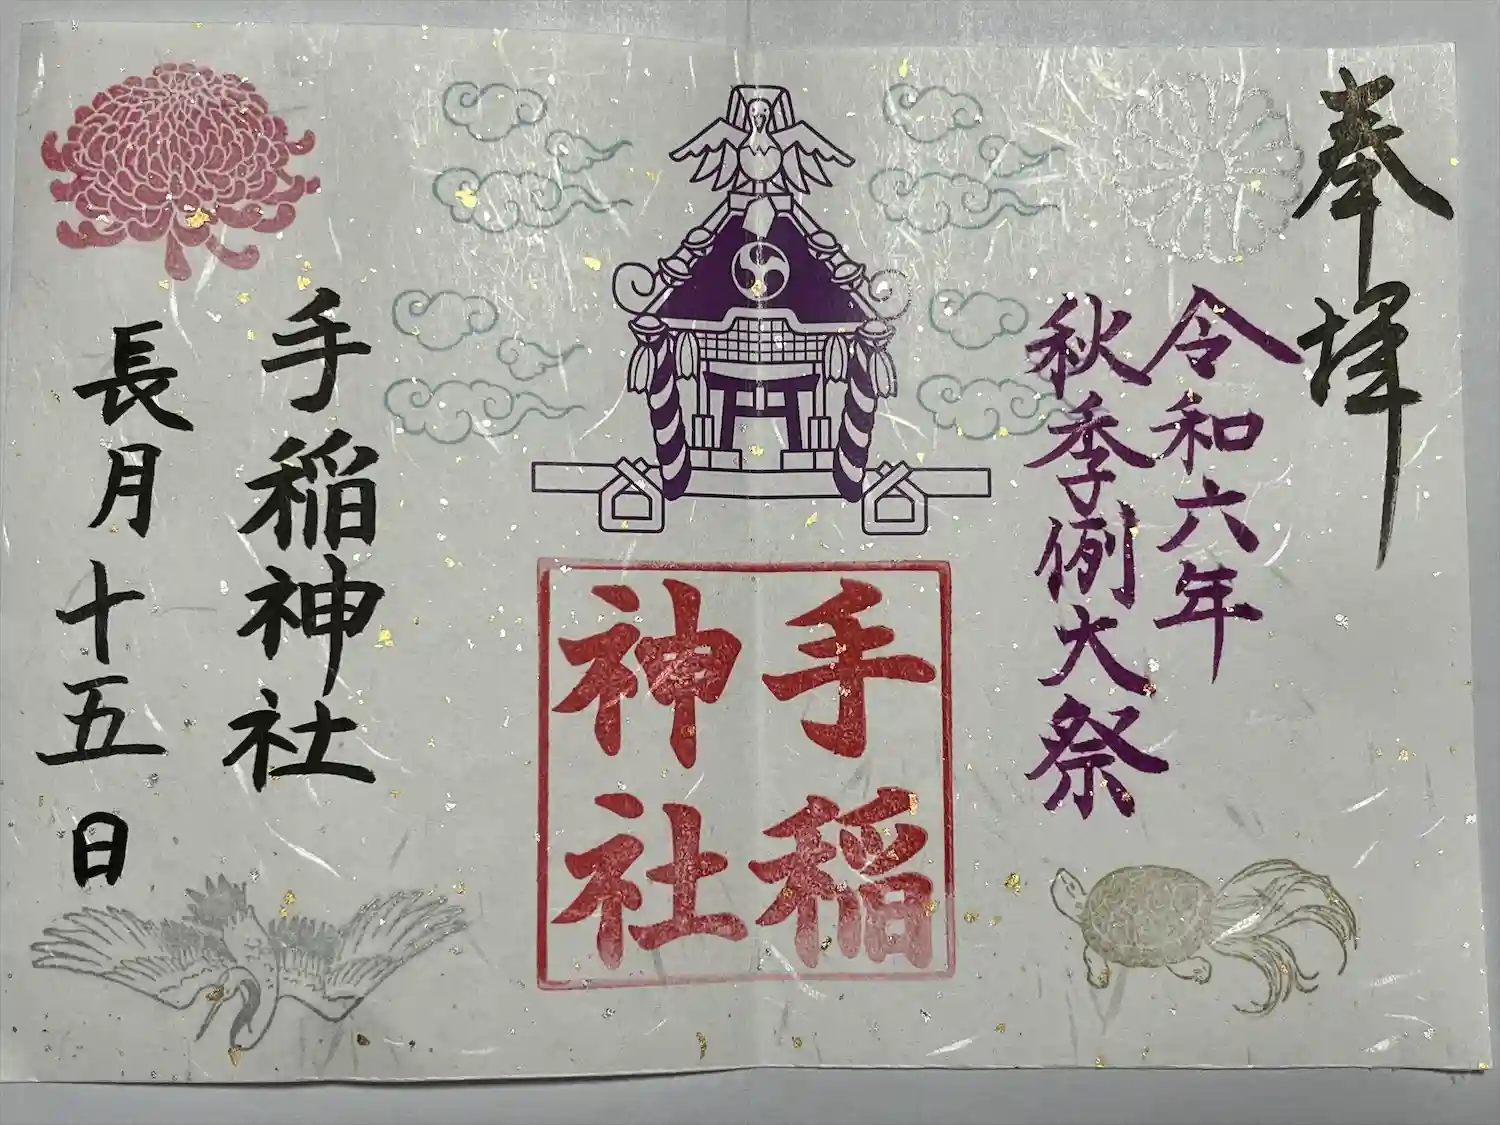 奉拝
令和六年
秋季例大祭
手稲
神社
手稲神社
長月十五日